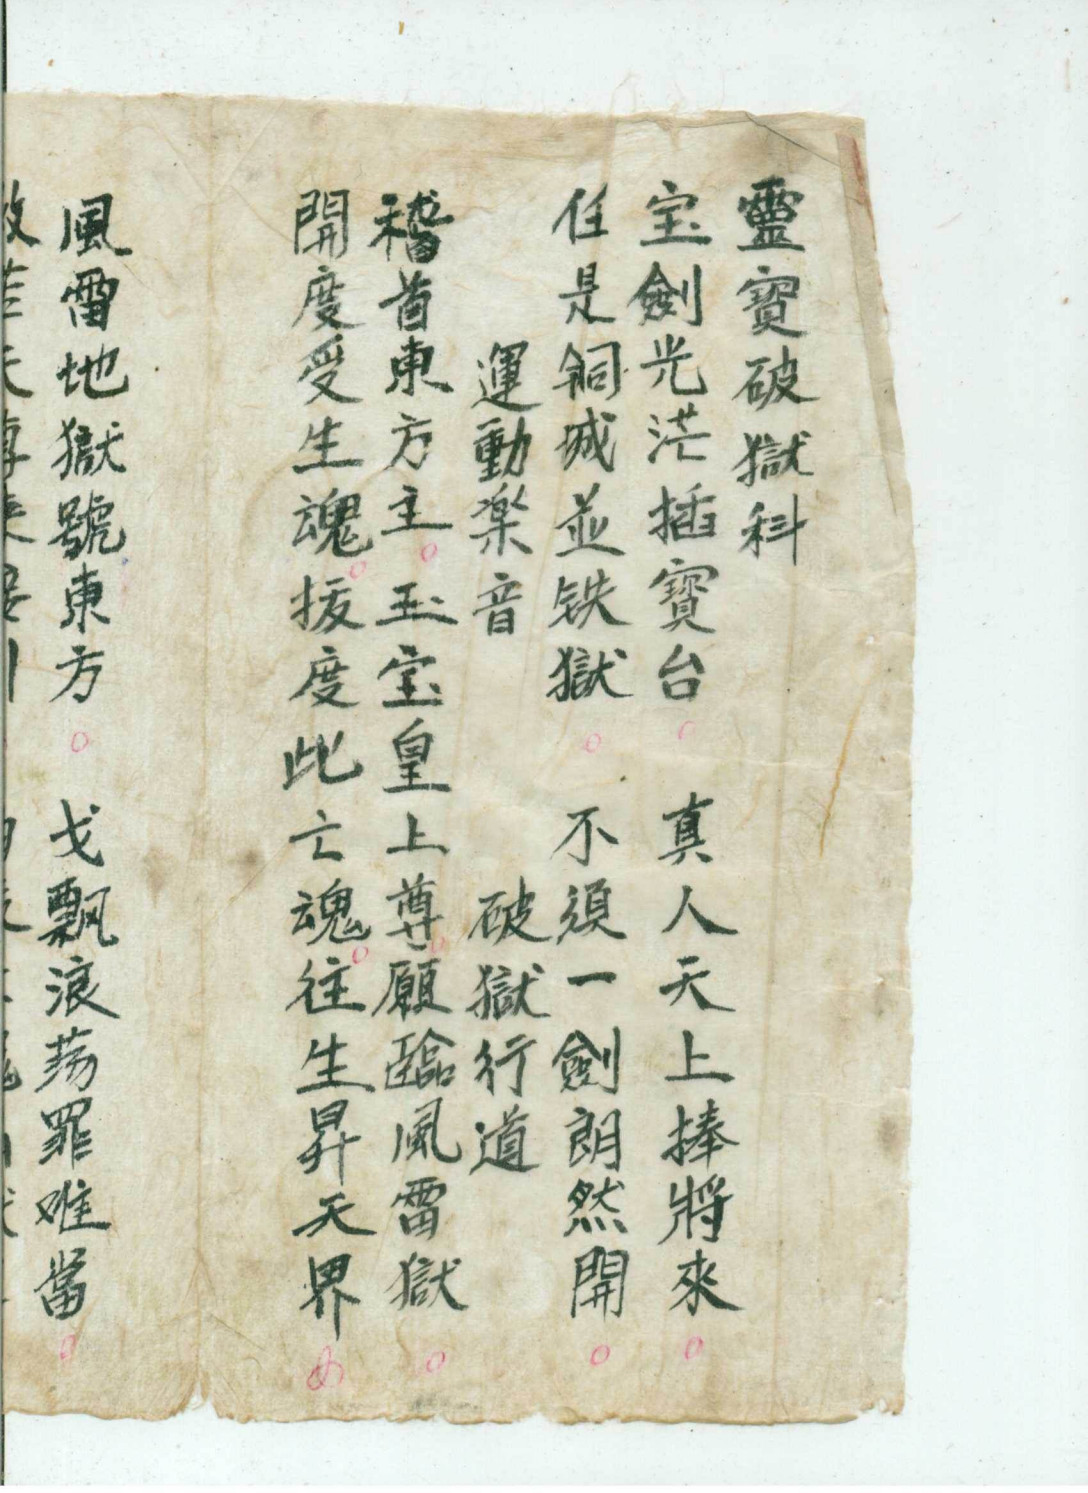 靈寳破獄科
宝劍光茫插寳台 真人天上捧將來
任是銅城並铁獄 不須一劍朗然開
運動楽音 破獄行道
稽首東方主 玉宝皇上尊願臨風雷獄
開度受生魂拔度此亡魂往生昇天界
風雷地獄號東方 戈飄浪荡罪难當